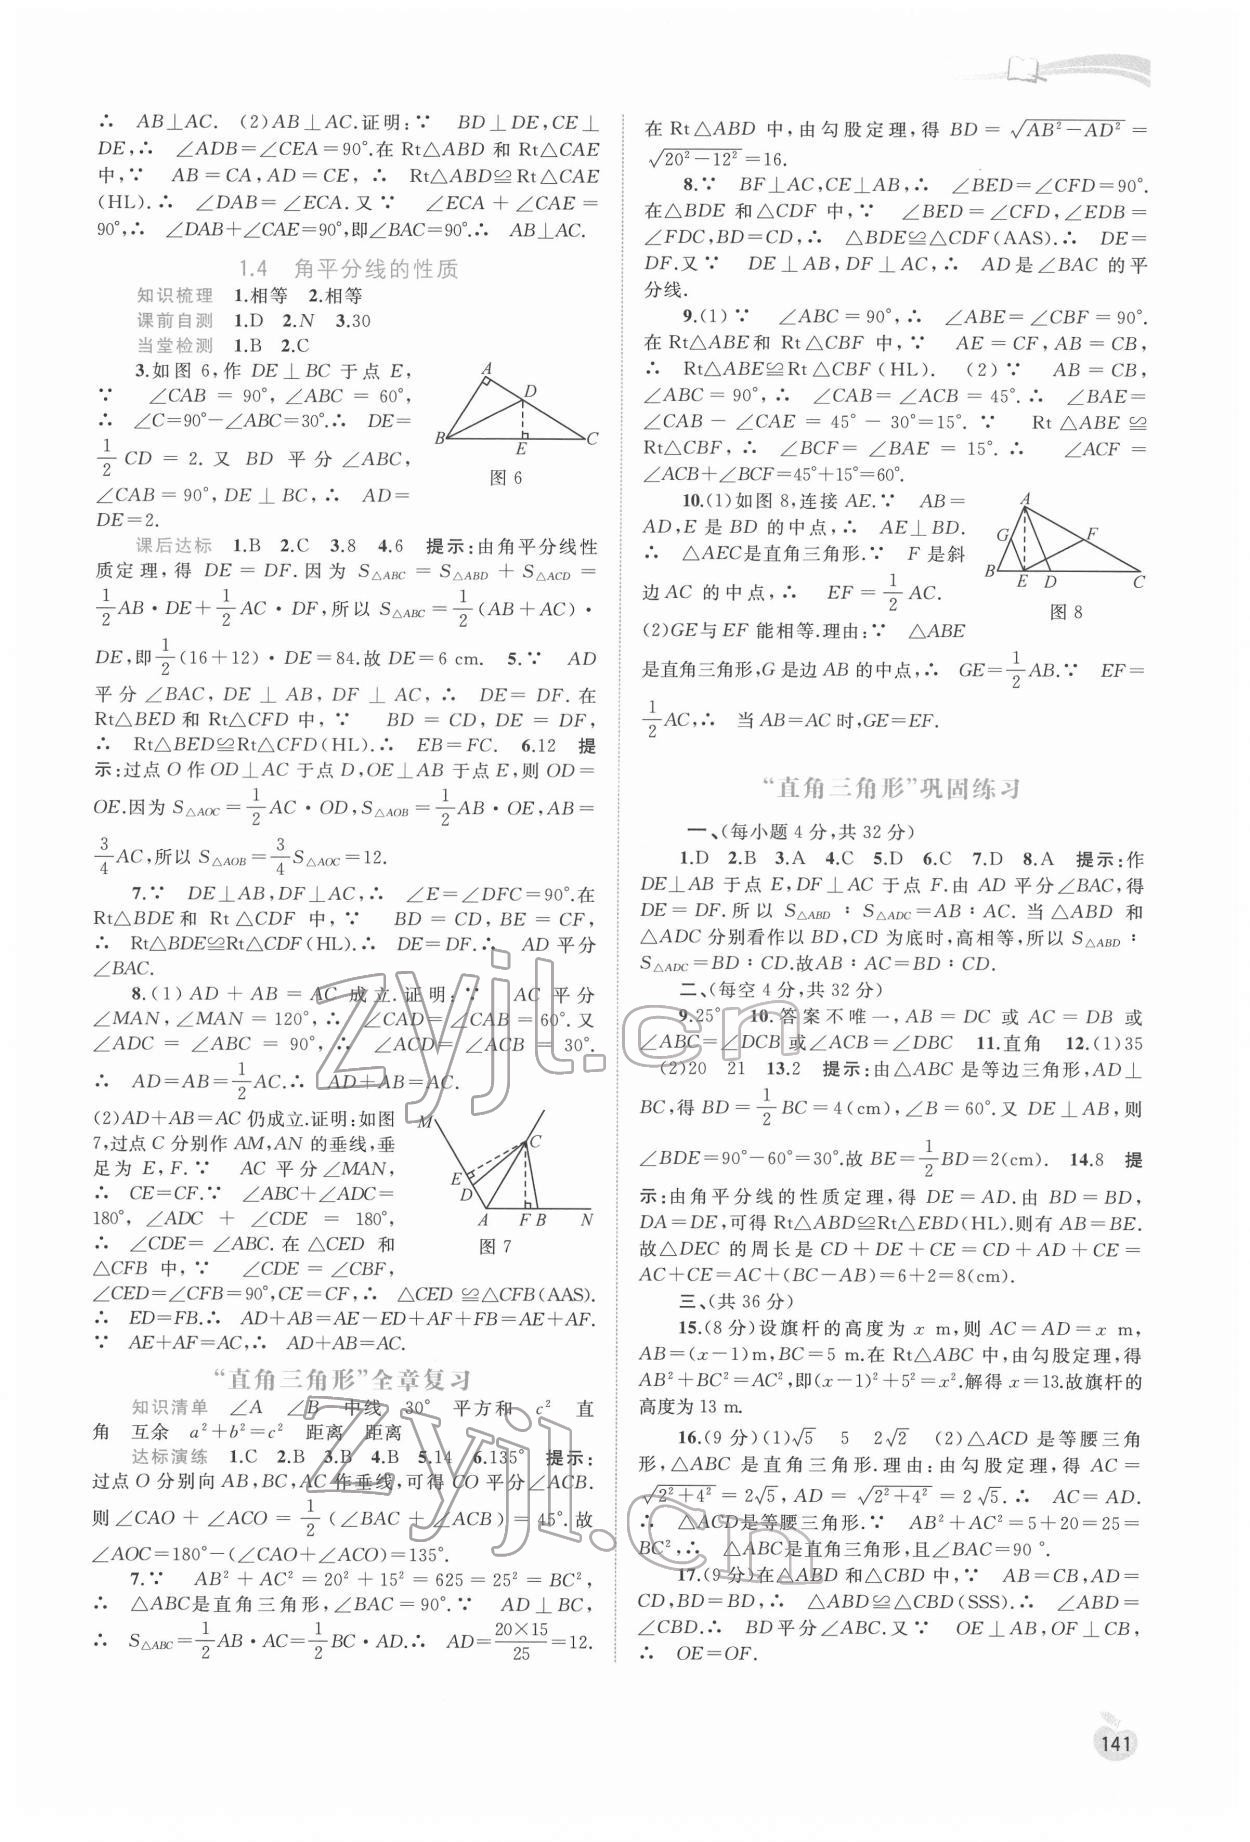 ∴ AB⊥AC. (2)AB⊥AC.证明:∵ BD⊥DE,CE⊥
DE,∴ ∠ADB=∠CEA=90°.在Rt△ABD 和 Rt△CAE
中,∵ AB=CA,AD=CE, ∴ Rt△ABD≌Rt△CAE
(HL).∴ ∠DAB=∠ECA.又∵ ∠ECA+∠CAE=
90°,∴ ∠DAB+∠CAE=90°,即∠BAC=90°.∴ AB⊥AC.
1.4 角平分线的性质
知识梳理 1.相等 2.相等
课前自测 1.D 2.N 3.30
当堂检测 1.B 2.C
3.如图 6,作 DE⊥BC 于点 E,
∵ ∠CAB = 90°,∠ABC = 60°,
∴ ∠C=90°-∠ABC=30°.∴ DE=
1/2 CD = 2.又 BD 平分∠ABC,
∠CAB=90°,DE⊥BC,∴ AD=
DE=2.
A
D
B
E
C
图 6
课后达标 1.B 2.C 3.8 4.6 提示:由角平分线性
质定理,得 DE=DF.因为 S△ABC=S△ABD+S△ACD=
1/2 AB·DE+1/2 AC·DF,所以 S△ABC=1/2(AB+AC)·
DE,即1/2(16+12)·DE=84.故DE=6 cm. 5.∵ AD
平分∠BAC,DE⊥AB,DF⊥AC,∴ DE=DF.在
Rt△BED 和 Rt△CFD 中,∵ BD=CD,DE=DF,
∴ Rt△BED≌Rt△CFD(HL).∴ EB=FC. 6.12 提
示:过点 O 作 OD⊥AC 于点 D,OE⊥AB 于点 E,则 OD=
OE.因为 S△AOC=1/2 AC·OD,S△AOB=1/2 AB·OE,AB=
3/4 AC,所以 S△AOB=3/4 S△AOC=12.
7.∵ DE⊥AB,DF⊥AC,∴ ∠E=∠DFC=90°.在
Rt△BDE和 Rt△CDF 中,∵ BD=CD,BE=CF,
∴ Rt△BDE≌Rt△CDF(HL).∴ DE=DF.∴ AD 平分
∠BAC.
8.(1) AD+AB=AC 成立.证明:∵ AC 平分
∠MAN,∠MAN=120°,∴ ∠CAD=∠CAB=60°.又
∠ADC=∠ABC=90°,∴ ∠ACD=∠ACB=30°.
∴ AD=AB=1/2 AC.∴ AD+AB=AC.
(2)AD+AB=AC 仍成立.证明:如图
7,过点 C 分别作 AM,AN 的垂线,垂
足为 E,F.∵ AC 平分∠MAN,
∴ CE=CF.∵ ∠ABC+∠ADC=
180°,∠ADC + ∠CDE = 180°,
∴ ∠CDE=∠ABC.在△CED 和
△CFB 中,∵ ∠CDE=∠CBF,
∠CED=∠CFB=90°,CE=CF,∴ △CED≌△CFB(AAS).
∴ ED=FB.∴ AD+AB=AE-ED+AF+FB=AE+AF.
∵ AE+AF=AC,∴ AD+AB=AC.
M
C
E
D
A
F
B
N
图 7
“直角三角形”全章复习
知识清单 ∠A ∠B 中线 30° 平方和 c² 直
角 互余 a²+b²=c² 距离 距离
达标演练 1.C 2.B 3.B 4.B 5.14 6.135° 提示:
过点 O 分别向 AB,BC,AC 作垂线,可得 CO 平分∠ACB.
则∠CAO+∠ACO=1/2(∠BAC+∠ACB)=45°.故
∠AOC=180°-(∠CAO+∠ACO)=135°.
7.∵ AB²+AC²=20²+15²=625=25²=BC²,
∴ △ABC是直角三角形,∠BAC=90°.∵ AD⊥BC,
∴ S△ABC=1/2 AB·AC=1/2 BC·AD.∴ AD=20×15/25=12.
在 Rt△ABD 中,由勾股定理,得 BD=√(AB²-AD²)=
√(20²-12²)=16.
8.∵ BF⊥AC,CE⊥AB,∴ ∠BED=∠CFD=90°.
在△BDE 和△CDF 中,∵ ∠BED=∠CFD,∠EDB=
∠FDC,BD=CD,∴ △BDE≌△CDF(AAS).∴ DE=
DF.又∵ DE⊥AB,DF⊥AC,∴ AD是∠BAC 的平
分线.
9.(1)∵ ∠ABC=90°,∴ ∠ABE=∠CBF=90°.
在Rt△ABE和 Rt△CBF 中,∵ AE=CF,AB=CB,
∴ Rt△ABE≌Rt△CBF(HL). (2)∵ AB=CB,
∠ABC=90°,∴ ∠CAB=∠ACB=45°.∴ ∠BAE=
∠CAB-∠CAE=45°-30°=15°.∵ Rt△ABE≌
Rt△CBF,∴ ∠BCF=∠BAE=15°.∴ ∠ACF=
∠ACB+∠BCF=45°+15°=60°.
10.(1)如图 8,连接 AE.∵ AB=
AD,E 是 BD 的中点,∴ AE⊥BD.
∴ △AEC是直角三角形.∵ F 是斜
边 AC 的中点,∴ EF=1/2 AC.
(2)GE与 EF 能相等.理由:∵ △ABE
是直角三角形,G 是边 AB 的中点,∴ GE=1/2 AB.∵ EF=
1/2 AC,∴ 当 AB=AC 时,GE=EF.
A
G
F
B
E
D
C
图 8
“直角三角形”巩固练习
一、(每小题 4 分,共 32 分)
1.D 2.B 3.A 4.C 5.D 6.C 7.D 8.A 提示:作
DE⊥AB 于点 E,DF⊥AC 于点 F.由 AD 平分∠BAC,得
DE=DF.所以 S△ABD∶S△ADC=AB∶AC.当△ABD 和
△ADC 分别看作以 BD,CD 为底时,高相等,所以 S△ABD∶
S△ADC=BD∶CD.故AB∶AC=BD∶CD.
二、(每空 4 分,共 32 分)
9.25° 10.答案不唯一,AB=DC 或 AC=DB 或
∠ABC=∠DCB 或∠ACB=∠DBC 11.直角 12.(1)35
(2)20 21 13.2 提示:由△ABC 是等边三角形,AD⊥
BC,得 BD=1/2 BC=4(cm),∠B=60°.又 DE⊥AB,则
∠BDE=90°-60°=30°.故 BE=1/2 BD=2(cm). 14.8 提
示:由角平分线的性质定理,得 DE=AD.由 BD=BD,
DA=DE,可得 Rt△ABD≌Rt△EBD(HL).则有 AB=BE.
故△DEC 的周长是 CD+DE+CE=CD+AD+CE=
AC+CE=AC+(BC-AB)=6+2=8(cm).
三、(共 36 分)
15.(8 分)设旗杆的高度为 x m,则 AC=AD=x m,
AB=(x-1)m,BC=5 m.在 Rt△ABC 中,由勾股定理,得
AB²+BC²=AC²,即(x-1)²+5²=x².解得 x=13.故旗杆的
高度为 13 m.
16.(9 分)(1)√5 5 2√2 (2)△ACD 是等腰三角
形,△ABC 是直角三角形.理由:由勾股定理,得 AC=
√(2²+4²)=2√5,AD=√(2²+4²)=2√5.∴ AC=AD.
∴ △ACD是等腰三角形.∵ AB²+AC²=5+20=25=
BC²,∴ △ABC是直角三角形,且∠BAC=90 °.
17.(9 分)在△ABD 和△CBD 中,∵ AB=CB,AD=
CD,BD=BD,∴ △ABD≌△CBD(SSS).∴ ∠ABD=
∠CBD.∴ BD平分∠ABC.又∵ OE⊥AB,OF⊥CB,
∴ OE=OF.
zyjl.cn
zyjl.cn
141